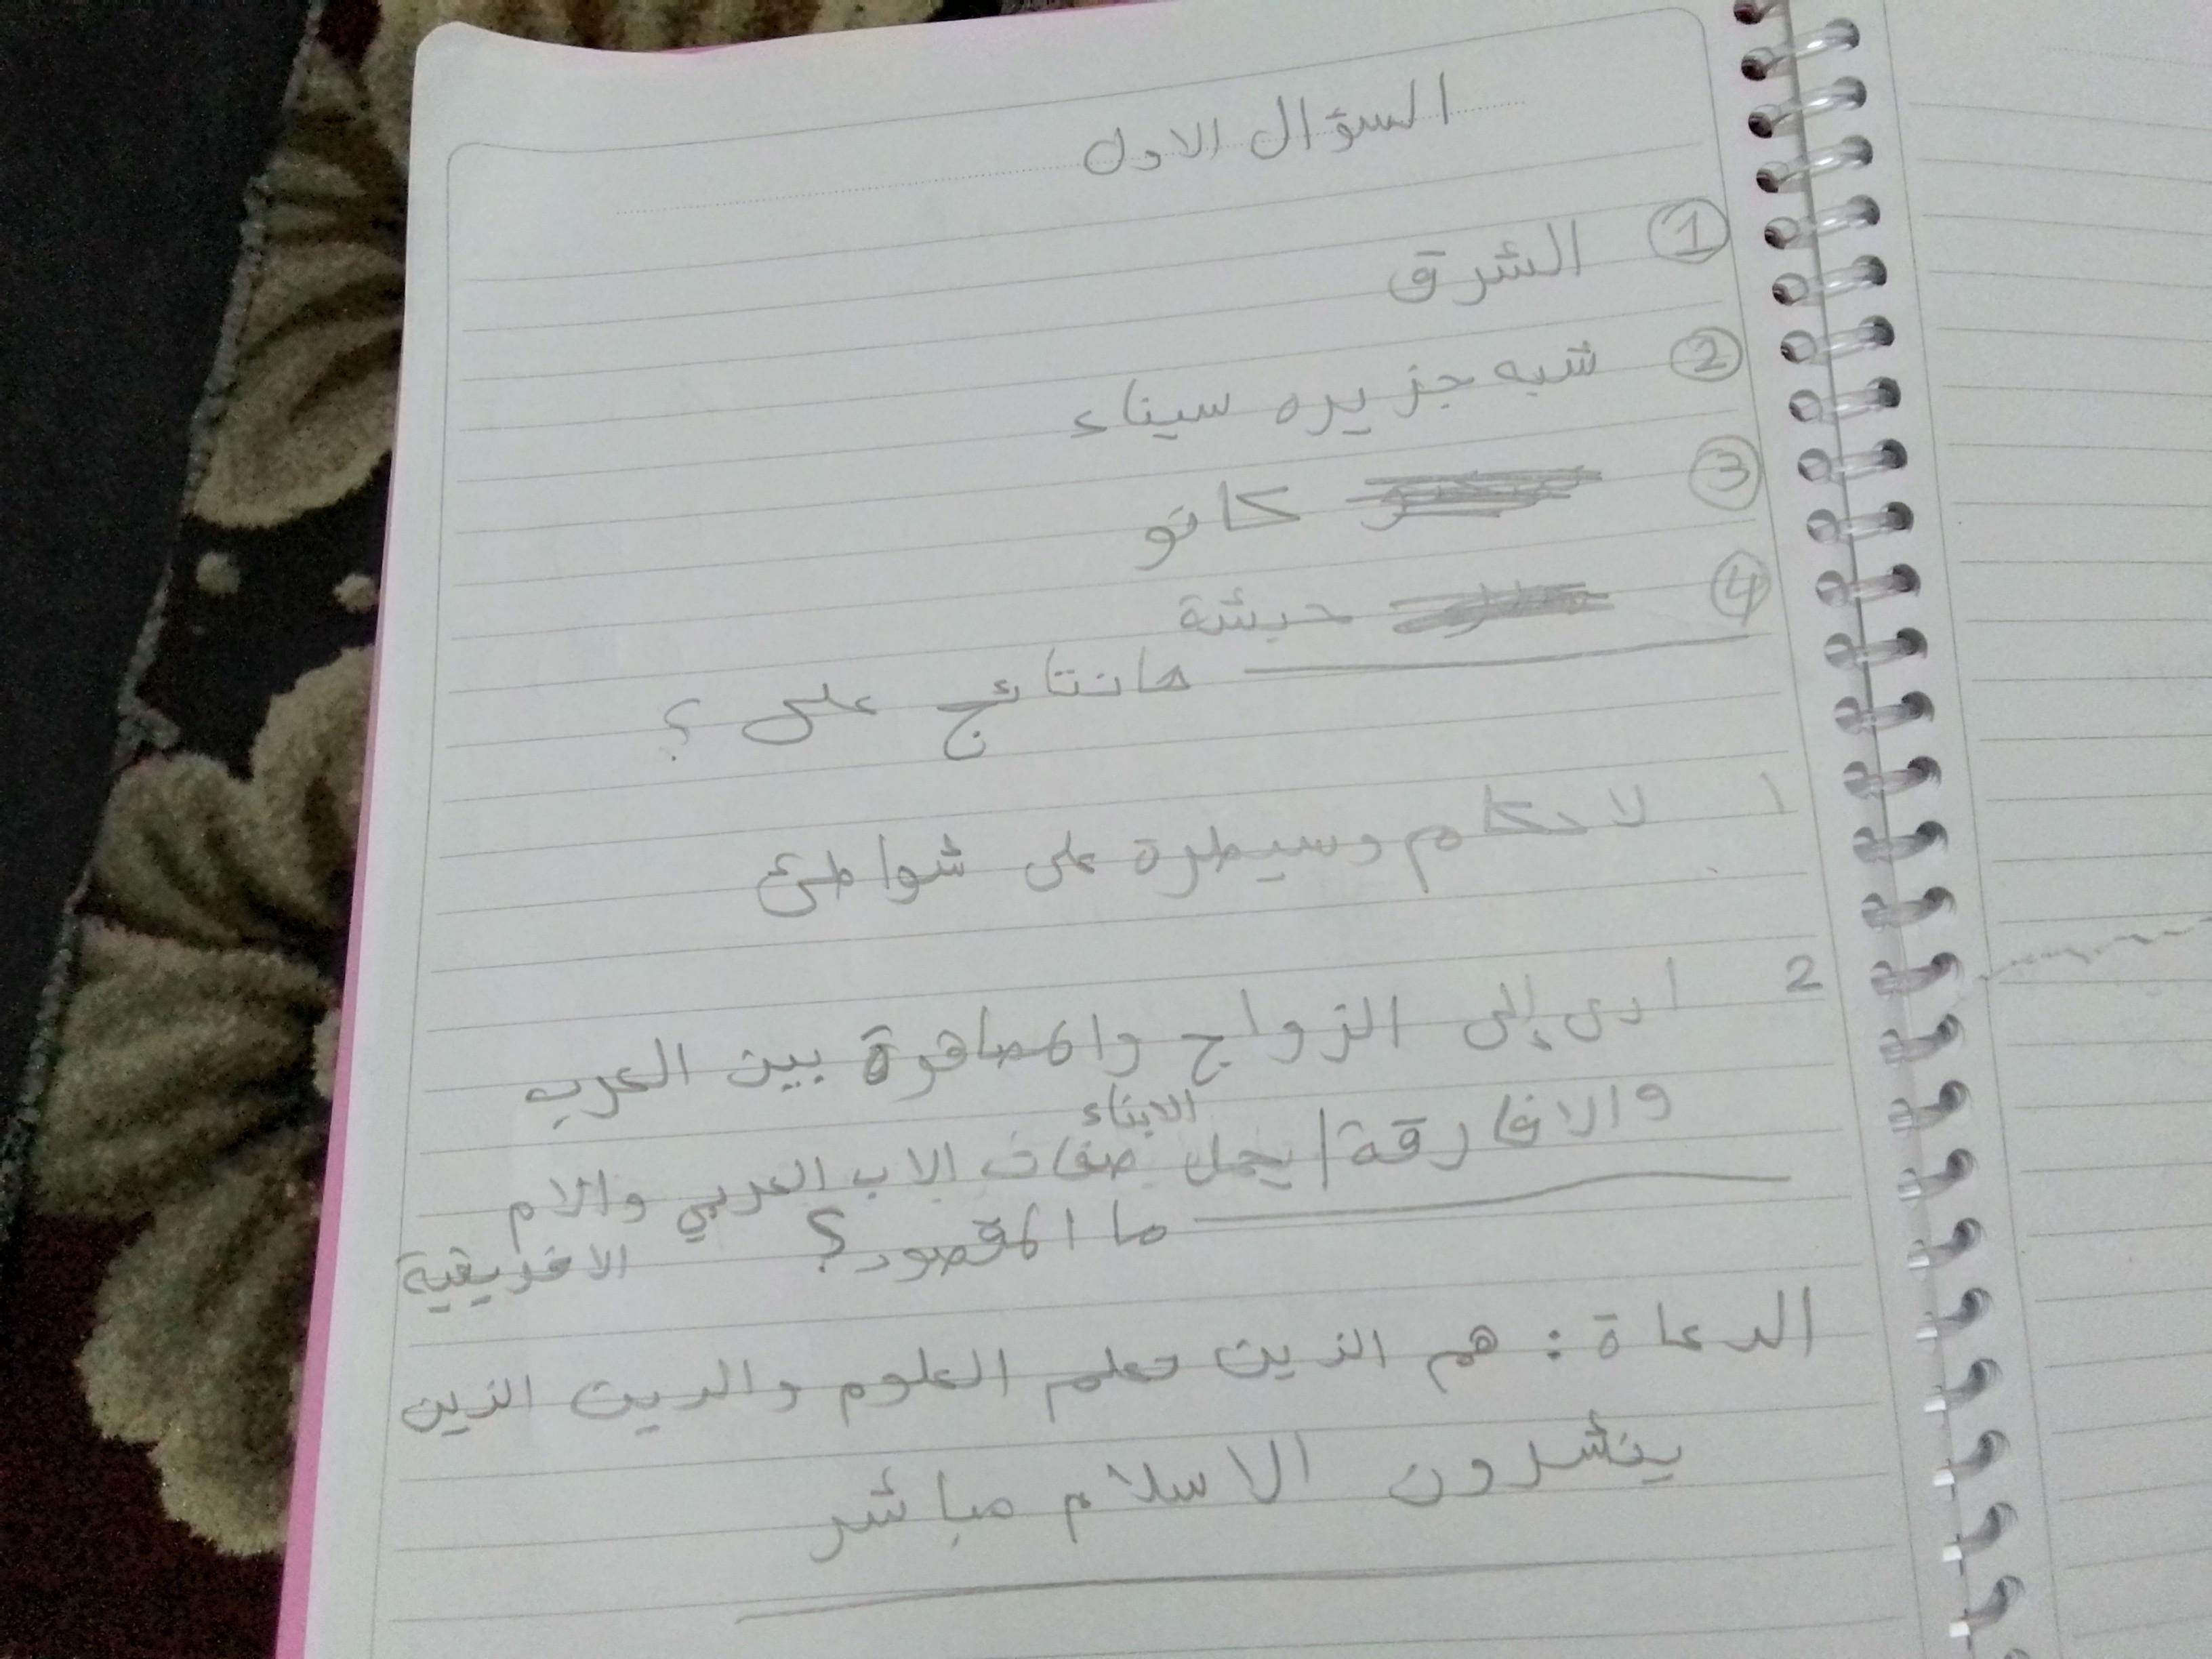 السؤال الاول
1 الشرق
2 شبه جزيره سيناء
3 كانو
4 حبشة
مانتائج على ؟
١ لاحكام وسيطرة على شواطئ
2 ادى إلى الزواج والمصاهرة بين العرب
والافارقة / يحمل الابناء صفات الاب العربي والام
الافريقية
ما المقصود؟
الدعاة : هم الذين معلم العلوم والدين الذين
ينشرون الاسلام مباشر